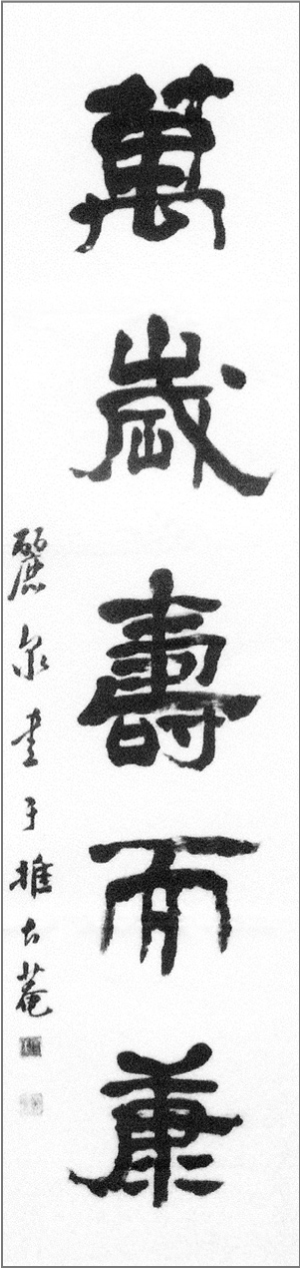 萬歲壽而康
麗泉書于古菴